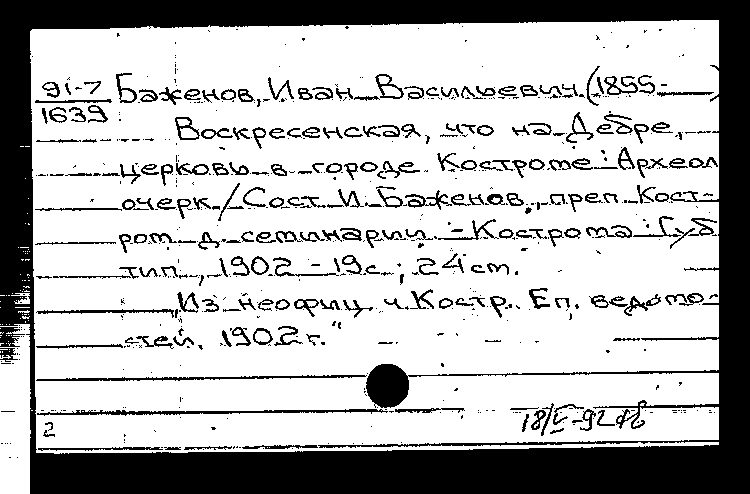 91-7 Баженов, Иван Васильевич (1855-
1639
Воскресенская, что на Дебре,
церковь в городе Костроме : Археол
очерк / Сост. И. Баженов, преп. Кост-
ром. д. семинарии. - Кострома : Губ
тип., 1902 - 19с ; 24 cm.
„Из неофиц. ч. Костр. Еп. ведомо-
стей. 1902 г.“
2